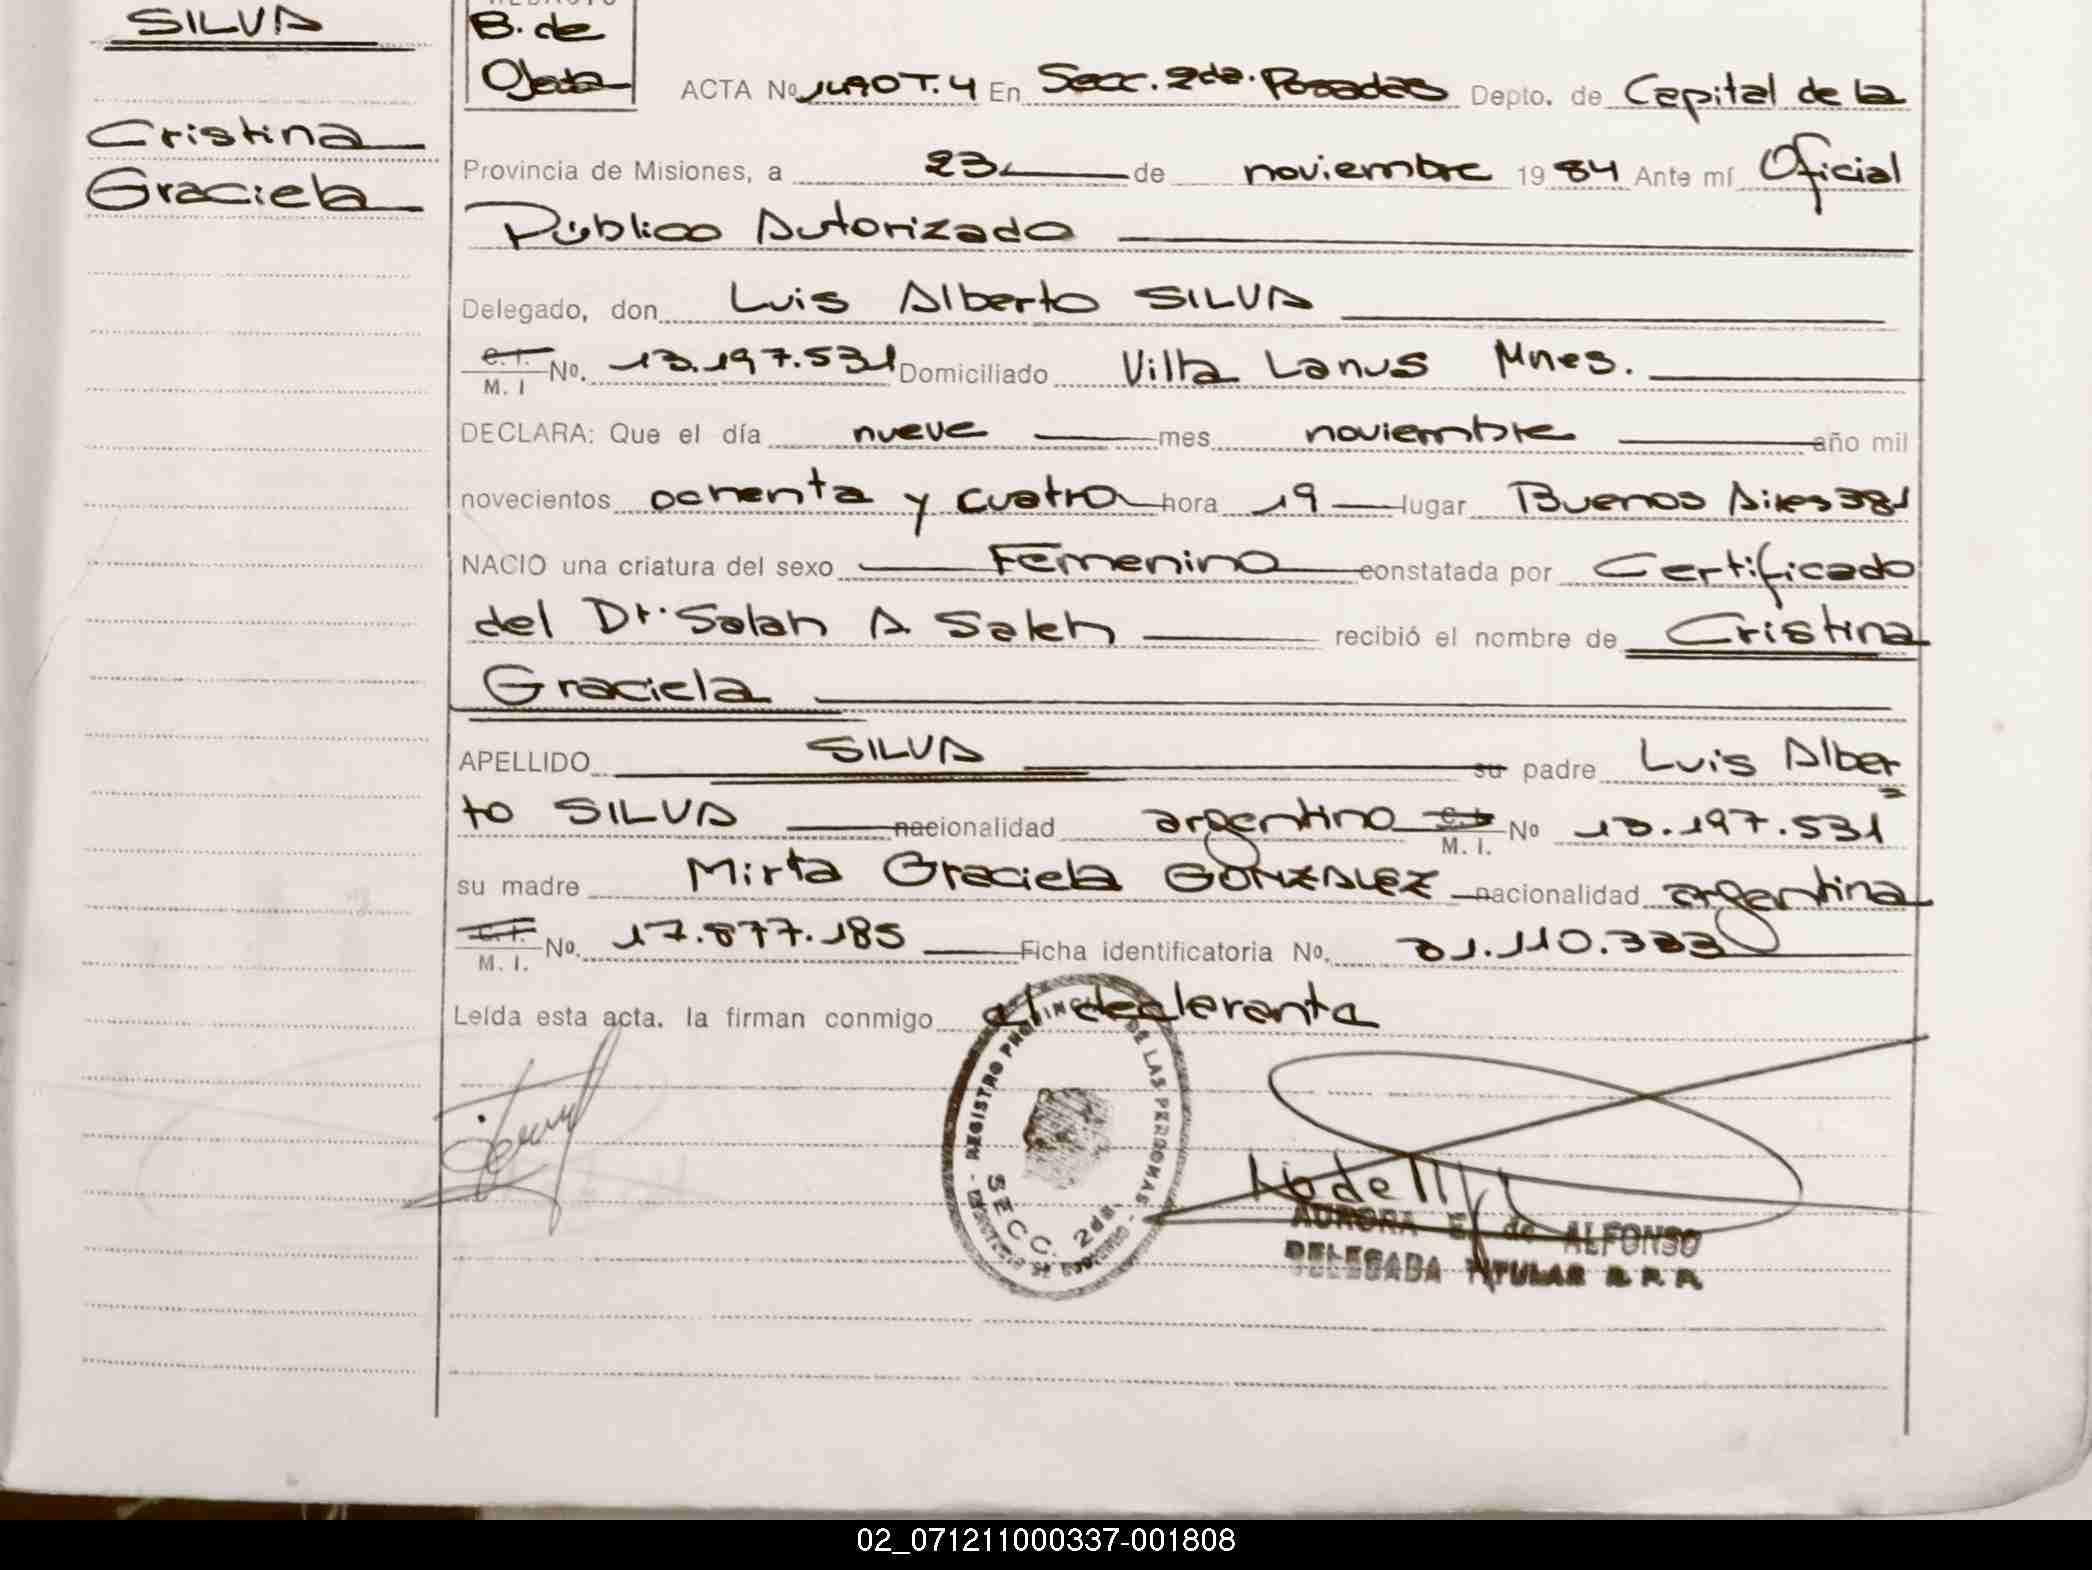 SILVA
Cristina
Graciela
B. de
Ojeda
ACTA No 1490 T.4 En Secc. 2da. Posadas Depto. de Capital de la
Provincia de Misiones, a 23 de noviembre 1984 Ante mí Oficial
Público Autorizado
Delegado, don Luis Alberto SILVA
C. I. M. I No. 13.197.531 Domiciliado Villa Lanus Mnes.
DECLARA: Que el día nueve mes noviembre año mil
novecientos ochenta y cuatro hora 19 lugar Buenos Aires 381
NACIO una criatura del sexo Femenino constatada por Certificado
del Dr. Salah A Saleh recibió el nombre de Cristina
Graciela
APELLIDO SILVA su padre Luis Alber
to SILVA nacionalidad argentino C. I. M. I. No 13.197.531
su madre Mirta Graciela GONZALEZ nacionalidad argentina
C. I. M. I. No. 17.877.185 Ficha identificatoria No. 31.110.383
Leída esta acta. la firman conmigo el declarante
REGISTRO PROVINCIAL DE LAS PERSONAS
SECC. 2da
AURORA E. de ALFONSO
DELEGADA TITULAR R. P. P.
02_071211000337-001808